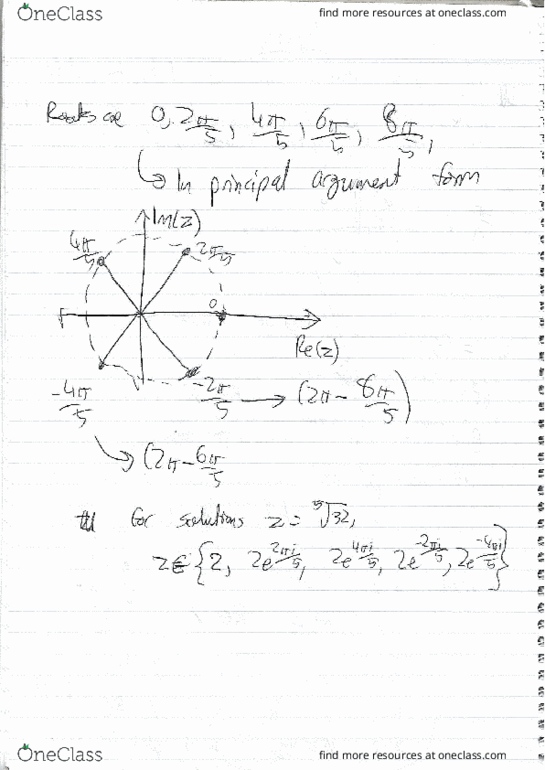 OneClass find more resources at oneclass.com
Roots are 0, 2π/5, 4π/5, 6π/5, 8π/5,
↳ In principal argument form
Im(z)
4π/5 2π/5
0
Re(z)
-4π/5 -2π/5 → (2π - 8π/5)
→ (2π - 6π/5
for solutions z = ⁵√32,
z ∈ {2, 2e^(2πi/5), 2e^(4πi/5), 2e^(-2πi/5), 2e^(-4πi/5)}
OneClass find more resources at oneclass.com